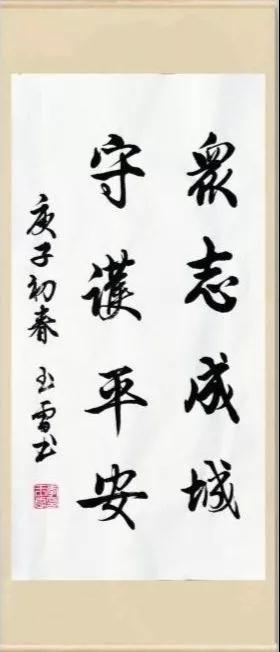 眾志成城
守護平安
庚子初春 玉雪书